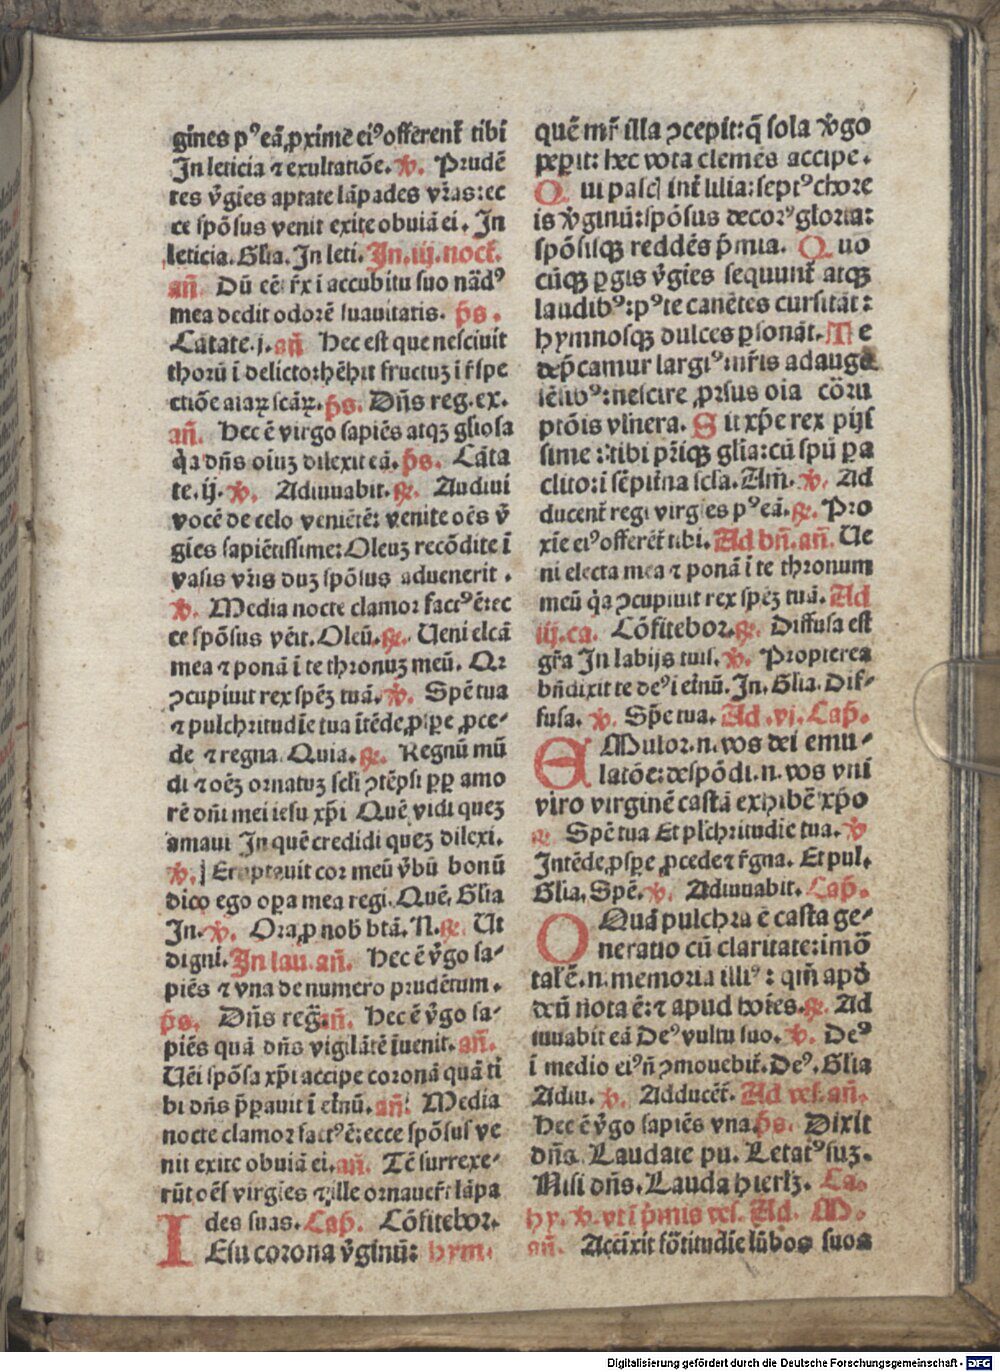 gines p⁹ eā, ꝓxime ei⁹ offerenť tibi
In leticia ⁊ exultatiōe. ꝟ. Prudē
tes ꝟgīes aptate lāpades vr̄as: ec
ce spōsus venit exite obuiā ei. In
leticia. Glia. In leti. In .iij. nocť.
an̄. Dū eē: r̄x ī accubitu suo nād⁹
mea dedit odorē suauitatis. p̄s.
Cātate. j. an̄ Hec est que nesciuit
thorū ī delicto: hēbit fructuꝫ ī r̄spe
ctiōe aiaꝝ scāꝝ. p̄s. Dn̄s reg. ex.
an̄. Hec ē virgo sapiēs atqꝫ gliosa
q̄a dn̄s oiuꝫ dilexit eā. p̄s. Cāta
te. ij. ꝟ. Adiuuabit. ꝶ. Audiui
vocē de celo veniētē: venite oēs ꝟ
gīes sapiētissime: Oleuꝫ recōdite ī
vasis vr̄is duꝫ spōsus aduenerit.
ꝟ. Media nocte clamor fact⁹ ē: ec
ce spōsus vēit. Oleū. ꝶ. Ueni elcā
mea ⁊ ponā ī te thronuꝫ meū. Qr
ꝯcupiuit rex spēꝫ tuā. ꝟ. Spē tua
⁊ pulchritudīe tua ītēde, ꝓspe ꝓce-
de ⁊ regna. Quia. ꝶ. Regnū mū
di ⁊ oēꝫ ornatuꝫ scli ꝯtēpsi ꝓp amo
rē dn̄i mei iesu xp̄i Quē vidi queꝫ
amaui In quē credidi queꝫ dilexi.
ꝟ. Eructauit cor meū ꝟbū bonū
dico ego oꝑa mea regi. Quē. Glia
In. ꝟ. Ora ꝓ nob̄ btā. N. ꝶ. Ut
digni. In lau. an̄. Hec ē ꝟgo sa-
piēs ⁊ vna de numero prudētum.
p̄s. Dn̄s reg̈. an̄. Hec ē ꝟgo sa-
piēs quā dn̄s vigilātē īuenit. an̄.
Uēi spōsa xp̄i accipe coronā quā ti
bi dn̄s p̄parauit ī eťnū. an̄. Media
nocte clamor fact⁹ ē: ecce spōsus ve
nit exite obuiā ei. an̄. Tē surrexe-
rūt oēs virgīes ⁊ ille ornauer̄t lāpa
des suas. Cap̄. Cōfitebor.
IEsu corona ꝟginū: hym.
quē mr̄ illa ꝯcepit: q̄ sola ꝟgo
peꝑit: hec vota clemēs accipe.
Qui pascꝭ inť lilia: sept⁹ chore
is ꝟginū: spōsus decor⁹ gloria:
spōsisqꝫ reddēs p̄mia. Quo
cūqꝫ ꝑgis ꝟgīes sequunť atqꝫ
laudib⁹: p⁹ te canētes cursitāt:
hymnosqꝫ dulces ꝑsonāt. Te
dep̄camur largi⁹: nr̄is adauge
sēsib⁹: nescire ꝓrsus oīa cōru
ptōis vlnera. Sit xp̄e rex pijs
sime: tibi pr̄iqꝫ glia: cū spū pa
clito: ī sēpiťna scla. Am̄. ꝟ. Ad
ducenť regi virgīes p⁹ eā. ꝶ. Pro
xīe ei⁹ offerēť tibi. Ad bn̄. an̄. Ue
ni electa mea ⁊ ponā ī te thronum
meū q̄a ꝯcupiuit rex spēꝫ tuā. Ad
iij. ca. Cōfitebor. ꝶ. Diffusa est
gr̄a In labijs tuis. ꝟ. Propterea
bn̄dixit te de⁹ ī eťnū. In. Glia. Dif-
fusa. ꝟ. Spē tua. Ad .vj. Cap̄.
EMulor. n. vos dei emu-
latōe: despōdi. n. vos vni
viro virginē castā exhibē xp̄o
ꝶ Spē tua Et plchritudīe tua. ꝟ
Intēde, ꝓspe ꝓcede ⁊ r̄gna. Et pul.
Glia. Spē. ꝟ. Adiuuabit. Cap̄.
OQuā pulchra ē casta ge-
neratio cū claritate: imō
talē. n. memoria illi⁹: qm̄ apd̄
deū nota ē: ⁊ apud hoīes. ꝶ. Ad
iuuabit eā De⁹ vultu suo. ꝟ. De⁹
ī medio ei⁹ n̄ ꝯmouebiť. De⁹. Glia
Adiu. ꝟ. Adducēť. Ad vesꝭ. an̄.
Hec ē ꝟgo sapiēs vna. p̄s. Dixit
dn̄s. Laudate pu. Letat⁹ suꝫ.
Nisi dn̄s. Lauda hierlꝫ. Ca.
hy. ꝟ. vt ī p̄mis vesꝭ. Ad. M.
an̄. Accīxit fōtitudīe lūbos suos
Digitalisierung gefördert durch die Deutsche Forschungsgemeinschaft - DFG